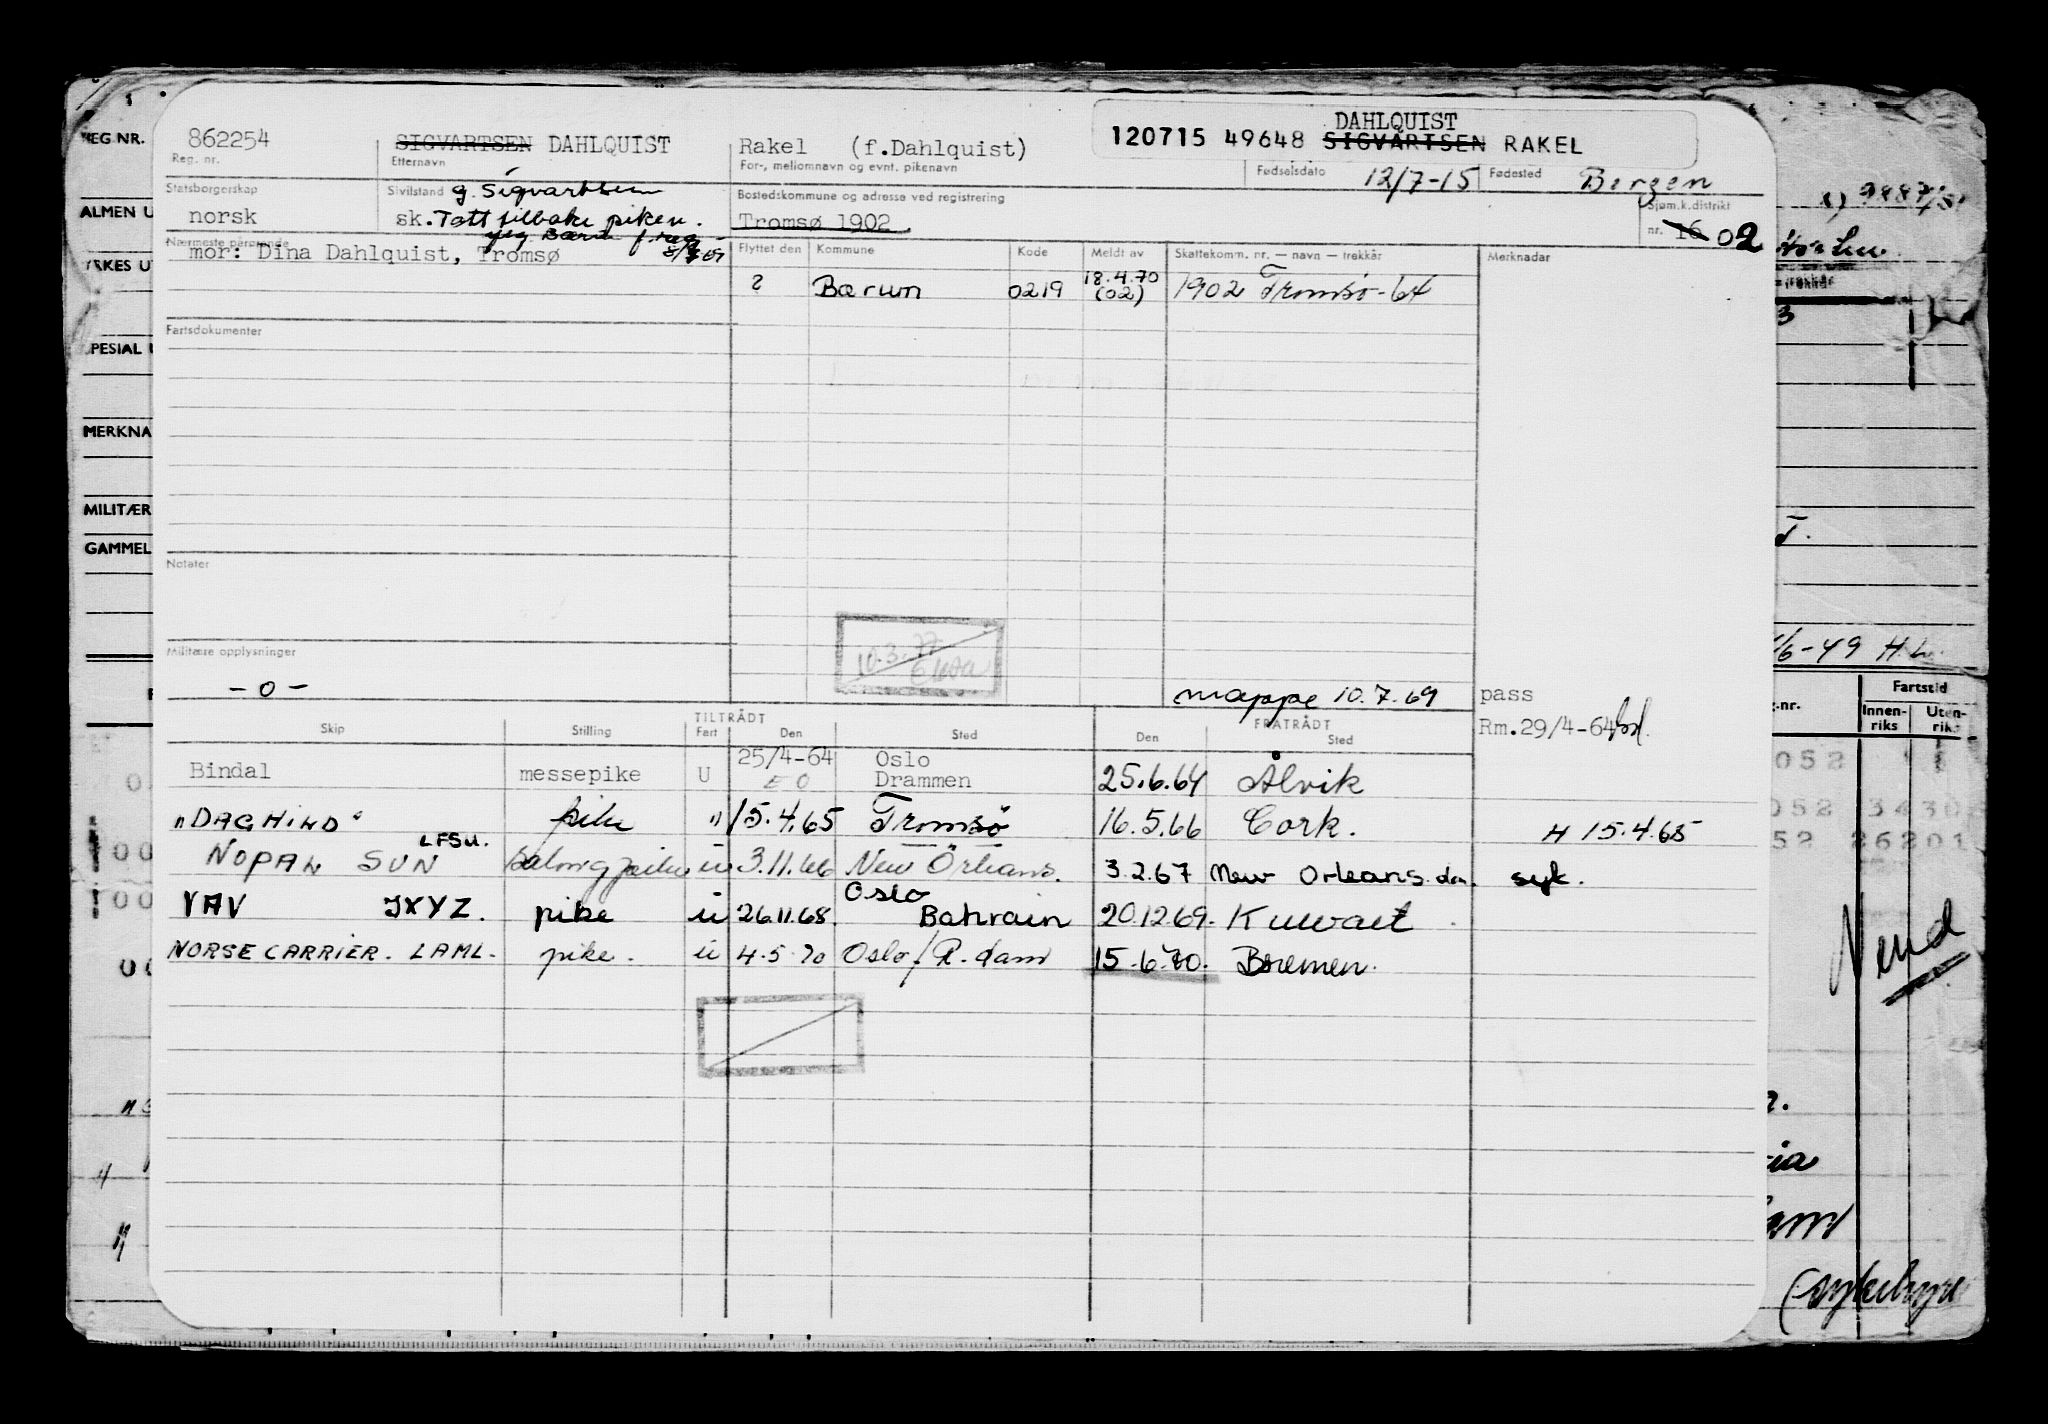 DAHLQUIST
120715 49648 SIGVARTSEN RAKEL
862254 SIGVARTSEN DAHLQUIST Rakel (f.Dahlquist)
Reg. nr. Etternavn For-, mellomnavn og evnt. pikenavn
Fødselsdato 12/7-15 Fødested Bergen
Statsborgerskap Sivilstand g. Sigvartsen Bostedskommune og adresse ved registrering Sjøm.k.distrikt
norsk sk. Tatt tilbake piken. Tromsø 1902 nr. 16 02
Nærmeste pårørende
mor: Dina Dahlquist, Tromsø
Flyttet den Kommune Kode Meldt av Skattekomm. nr. — navn — trekkår Merknader
? Bærum 0219 18.4.70 (02) 1902 Tromsø-64
Fartsdokumenter
Notater
10.3.77
Militære opplysninger
-0- mappe 10.7.69 pass
Rm.29/4-64
TILTRÅDT FRATRÅDT
Skip Stilling Fart Den Sted Den Sted
Bindal messepike U 25/4-64 Oslo Drammen 25.6.64 Ålvik
EO
"DAGHILD" pike " 15.4.65 Tromsø 16.5.66 Cork. H 15.4.65
NOPAL SUN LFSU. salongpike u 3.11.66 New Orleans. 3.2.67 New Orleans. syk.
VAV JXYZ. pike u 26.11.68. Oslo Bahrain 20.12.69. Kuwait
NORSE CARRIER. LAML. pike. u 4.5.70 Oslo/R.dam 15.6.70. Bremen.
REG NR.
ALMEN U
YRKES U
SPESIAL U
MERKNA
MILITÆR
GAMMEL
9887/5
3
T.
/6-49 H.L.
Fartstid
g.-nr. Innen-riks Uten-riks
052
052 3430
52 26201
Vend